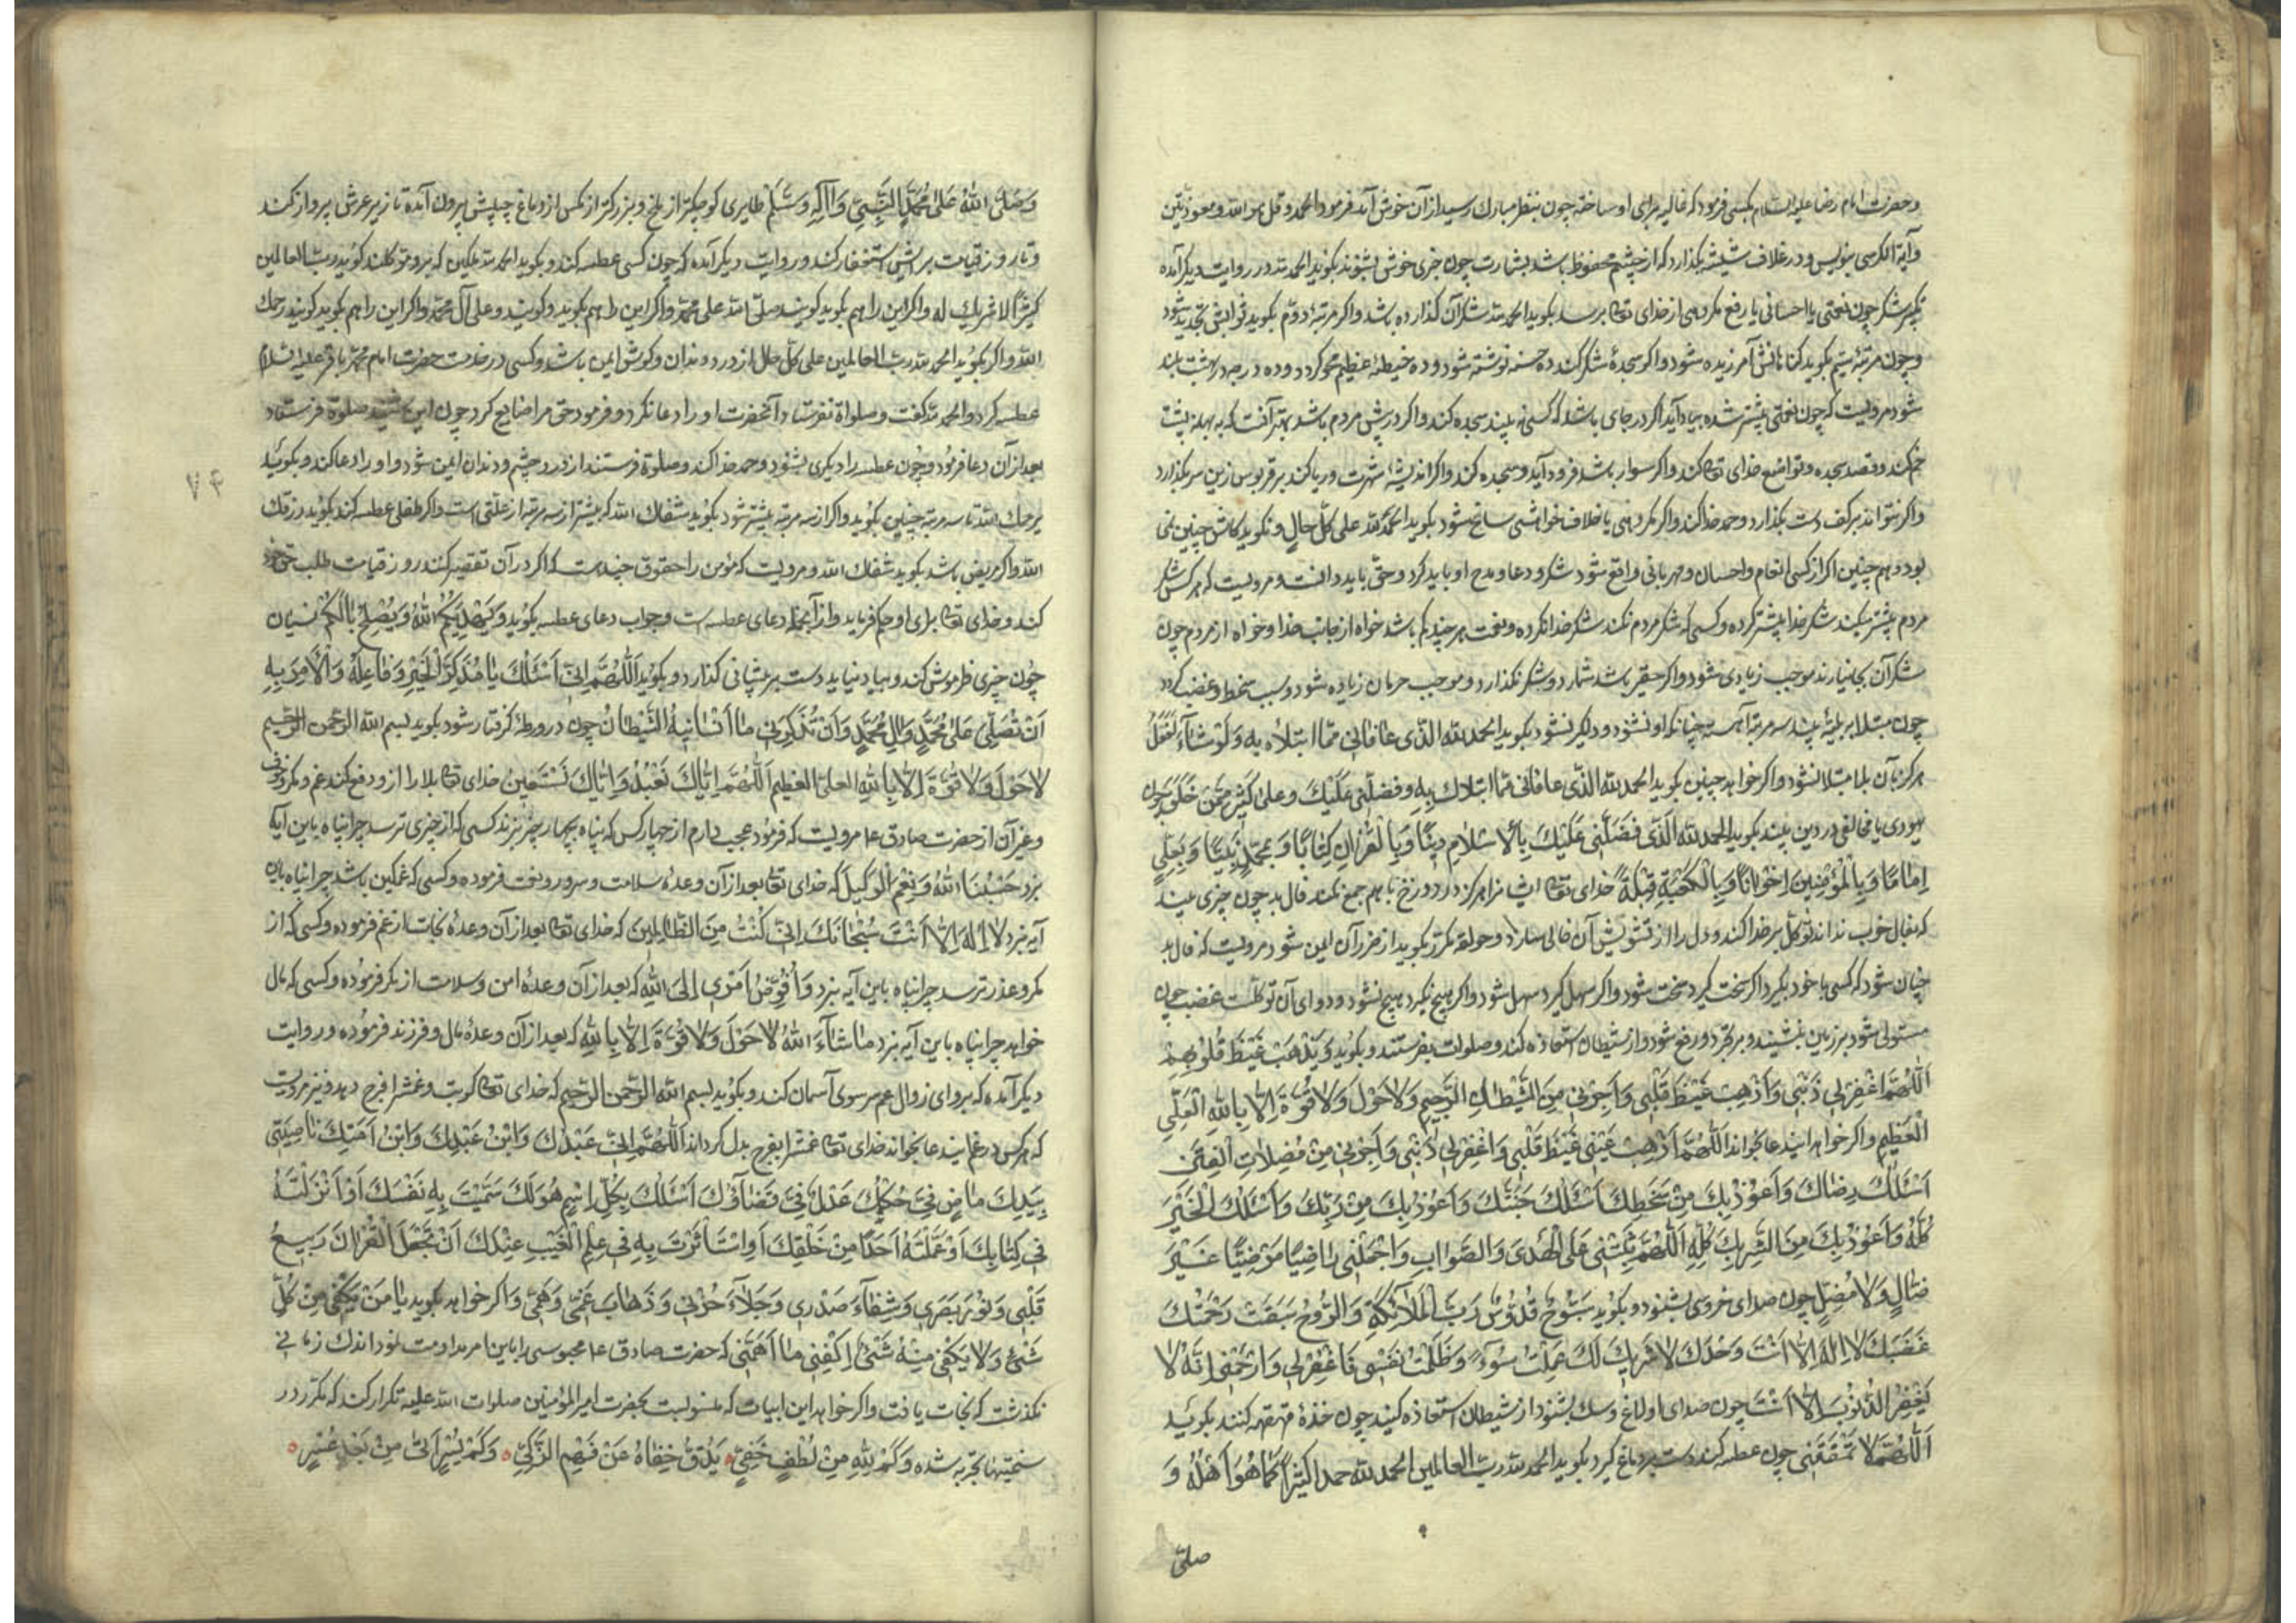 وحضرت امام رضا علیه السلام بکسی فرمود که غالیه برای او ساخته چون بنظر مبارک رسید از آن خوش آمد فرمود الحمد و قل هو الله و معوذتین
و آیة الکرسی بنویس و در غلاف شیشه بکذارد که از چشم محفوظ باشد بشارت چون خبری خوش بشنوند بکوید الحمد لله در روایت دیکر آمده
شکر چون نعمتی یا احسانی یا رفع مکروهی از خدای تعا برسد بکوید الحمد لله شکر آن کذارده باشد و اکر مرتبهٔ دوم بکوید ثوابش تجدید شود
و چون مرتبهٔ سیم بکوید کناهانش آمرزیده شود و اکر سجدهٔ شکر کند ده حسنه نوشته شود و ده خطیئهٔ عظیم محو کردد و ده درجه در بهشت بلند
شود مرویست که چون نعمتی پیشتر شده بیاد آید اکر در جای باشد که کسی نه بیند سجده کند و اکر در پیش مردم باشد بهتر آنست که پشت
خم کند و قصد سجده و تواضع خدای تعا کند و اکر سوار باشد فرود آید و سجده کند و اکر اندیشهٔ شهرت و ریا کند بر قربوس زین سر بکذارد
و اکر نتواند بر کف دست بکذارد و حمد خدا کند و اکر مکروهی یا خلاف خواهشی سانح شود بکوید الحمد لله علی کل حال و نکوید کاش چنین نمی
بود و هم چنین اکر از کسی انعام و احسان و مهربانی واقع شود شکر و دعا و مدح او باید کرد و حق باید دانست و مرویست که هر کس شکر
مردم بیشتر میکند شکر خدا بیشتر کرده و کسی که شکر مردم نکند شکر خدا نکرده و نعمت هر چند کم باشد خواه از جانب خدا و خواه از مردم چون
شکر آن بجا نیارند موجب زیادی شود و اکر حقیر باشد شمارد و شکر نکذارد و موجب حرمان زیاده شود و سبب سخط و غضب کردد
چون مبتلا ببلیهٔ بیند سه مرتبه آهسته چنانکه او نشنود و دلکیر نشود بکوید الحمد لله الذی عافانی مما ابتلاه به ولو شاء لفعل
هرکز بآن بلا مبتلا نشود و اکر خواهد چنین بکوید الحمد لله الذی عافانی مما ابتلاك به وفضلنی علیك وعلی کثیر ممن خلق چون
یهودی یا مخالفی در دین بیند بکوید الحمد لله الذی فضلنی علیك بالاسلام دینا وبالقران کتابا وبمحمد نبیا وبعلی
اماما وبالمؤمنین اخوانا وبالکعبة قبلة خدای تعا ایشانرا هرکز در دوزخ با هم جمع نکند فال بد چون چیزی بیند
که بفال خوب نداند توکل بر خدا کند و دل را از تشویش آن خالی سازد و حولقه مکرر بکوید از ضرر آن ایمن شود مرویست که فال بد
چنان شود که کسی با خود بکیرد اکر سخت کیرد سخت شود و اکر سهل کیرد سهل شود و اکر هیچ نکیرد هیچ نشود و دوای آن توکلست غضب چون
مستولی شود بر زمین بنشیند و رفع شود و از شیطان استعاذه کند و صلوات بفرستند و بکوید ویذهب غیظ قلوبهم
اللهم اغفر لی ذنبی واذهب غیظ قلبی واجرنی من الشیطان الرجیم ولا حول ولا قوة الا بالله العلی
العظیم و اکر خواهد ایندعا بخواند اللهم اذهب عنی غیظ قلبی واغفر لی ذنبی واجرنی من مضلات الفتن
اسئلك رضاك واعوذ بك من سخطك اسئلك جنتك واعوذ بك من نارك واسئلك الخیر
کله واعوذ بك من الشر کله اللهم ثبتنی علی الهدی والصواب واجعلنی راضیا مرضیا غیر
ضال ولا مضل چون صدای خروس بشنود و بکوید سبوح قدوس رب الملائکة والروح سبقت رحمتك
غضبك لا اله الا انت وحدك لا شریك لك عملت سوء وظلمت نفسی فاغفر لی وارحمنی انه لا
یغفر الذنوب الا انت چون صدای اولاغ و سك بشنود از شیطان استعاذه کنید چون خندهٔ قهقهه کنند بکوید
اللهم لا تمقتنی چون عطسه کند دست بر دماغ کیرد بکوید الحمد لله رب العالمین الحمد لله حمدا کثیرا کما هو اهله و
صلی
وصلی الله علی محمد النبی وآله وسلم طایری کوچکتر از ملخ و بزرکتر از مکس از دماغ چپش بیرون آمده تا زیر عرش پرواز کند
و تا روز قیامت برایش استغفار کند و روایت دیکر آمده که چون کسی عطسه کند و بکوید الحمد لله ملکین که موکلند کویند رب العالمین
کثیرا لا شریك له و اکر این را هم بکوید کویند صلی الله علی محمد و اکر این را هم بکوید و کویند و علی آل محمد و اکر این را هم بکوید کویند رحمك
الله و اکر بکوید الحمد لله رب العالمین علی کل حال از درد دندان و کوش ایمن باشد و کسی در خدمت حضرت امام محمد باقر علیه السلام
عطسه کرد و الحمد لله کفت و صلواة نفرستاد آنحضرت او را دعا نکرد و فرمود حق مرا ضایع کرد چون این شنید صلوة فرستاد
بعد از آن دعا فرمود و چون عطسه را دیکری بشنود و حمد خدا کند و صلوة فرستند از درد چشم و دندان ایمن شود و او را دعا کند و بکوید
۷۴
یرحمك الله تا سه مرتبه چنین بکوید و اکر از سه مرتبه بیشتر شود بکوید شفاك الله که بیشتر از سه مرتبه از علتی است و اکر طفلی عطسه کند بکوید رزقك
الله و اکر مریض باشد بکوید شفاك الله و مرویست که مؤمن را حقوق چند است که اکر در آن تقصیر کند روز قیامت طلب حق خود
کند و خدای تعا برای او حکم فرماید و از آنجمله دعای عطسه است و جواب دعای عطسه بکوید ویهدیکم الله ویصلح بالکم نسیان
چون چیزی فراموش کند و بیاد نیاید دست بر پیشانی کذارد و بکوید اللهم انی اسئلك یا مذکر الخیر وفاعله والآمر به
ان تصلی علی محمد وال محمد وان تذکرنی ما انسانیه الشیطان چون در ورطهٔ کرفتار شود بکوید بسم الله الرحمن الرحیم
لا حول ولا قوة الا بالله العلی العظیم اللهم ایاك نعبد وایاك نستعین خدای تعا بلا را ازو دفع کند غم و مکر
و غیر آن از حضرت صادق ع مرویست که فرمود عجب دارم از چهار کس که پناه بچهار چیز نبرند کسی که از چیزی ترسد چرا پناه باین آیه
نبرد حسبنا الله ونعم الوکیل که خدای تعا بعد از آن وعدهٔ سلامت و سرور و نعمت فرموده و کسی که غمکین باشد چرا پناه باین
آیه نبرد لا اله الا انت سبحانك انی کنت من الظالمین که خدای تعا بعد از آن وعدهٔ نجات از غم فرموده و کسی که از
مکر و عذر ترسد چرا پناه باین آیه نبرد وافوض امری الی الله که بعد از آن وعدهٔ امن و سلامت از مکر فرموده و کسی که مال
خواهد چرا پناه باین آیه نبرد ما شاء الله لا حول ولا قوة الا بالله که بعد از آن وعدهٔ مال و فرزند فرموده و روایت
دیکر آمده که برای زوال غم سر سوی آسمان کند و بکوید بسم الله الرحمن الرحیم که خدای تعا کربت و غمش را فرج دهد و نیز مرویست
که هر کس در غم ایندعا بخواند خدای تعا غمش را بفرج بدل کرداند اللهم انی عبدك وابن عبدك وابن امتك ناصیتی
بیدك ماض فی حکمك عدل فی قضاؤك اسئلك بکل اسم هو لك سمیت به نفسك او انزلته
فی کتابك او علمته احدا من خلقك او استأثرت به فی علم الغیب عندك ان تجعل القران ربیع
قلبی ونور بصری وشفاء صدری وجلاء حزنی وذهاب غمی وهمی و اکر خواهد بکوید یا من یکفی من کل
شئ ولا یکفی منه شئ اکفنی ما اهمنی که حضرت صادق ع محبوسی را باین امر مداومت نمود اندك زمانی
نکذشت که نجات یافت و اکر خواهد این ابیات که منسوبست بحضرت امیر المؤمنین صلوات الله علیه تکرار کند که مکرر در
سختیها تجربه شده وکم لله من لطف خفی یدق خفاه عن فهم الزکی وکم یسر اتی من بعد عسر